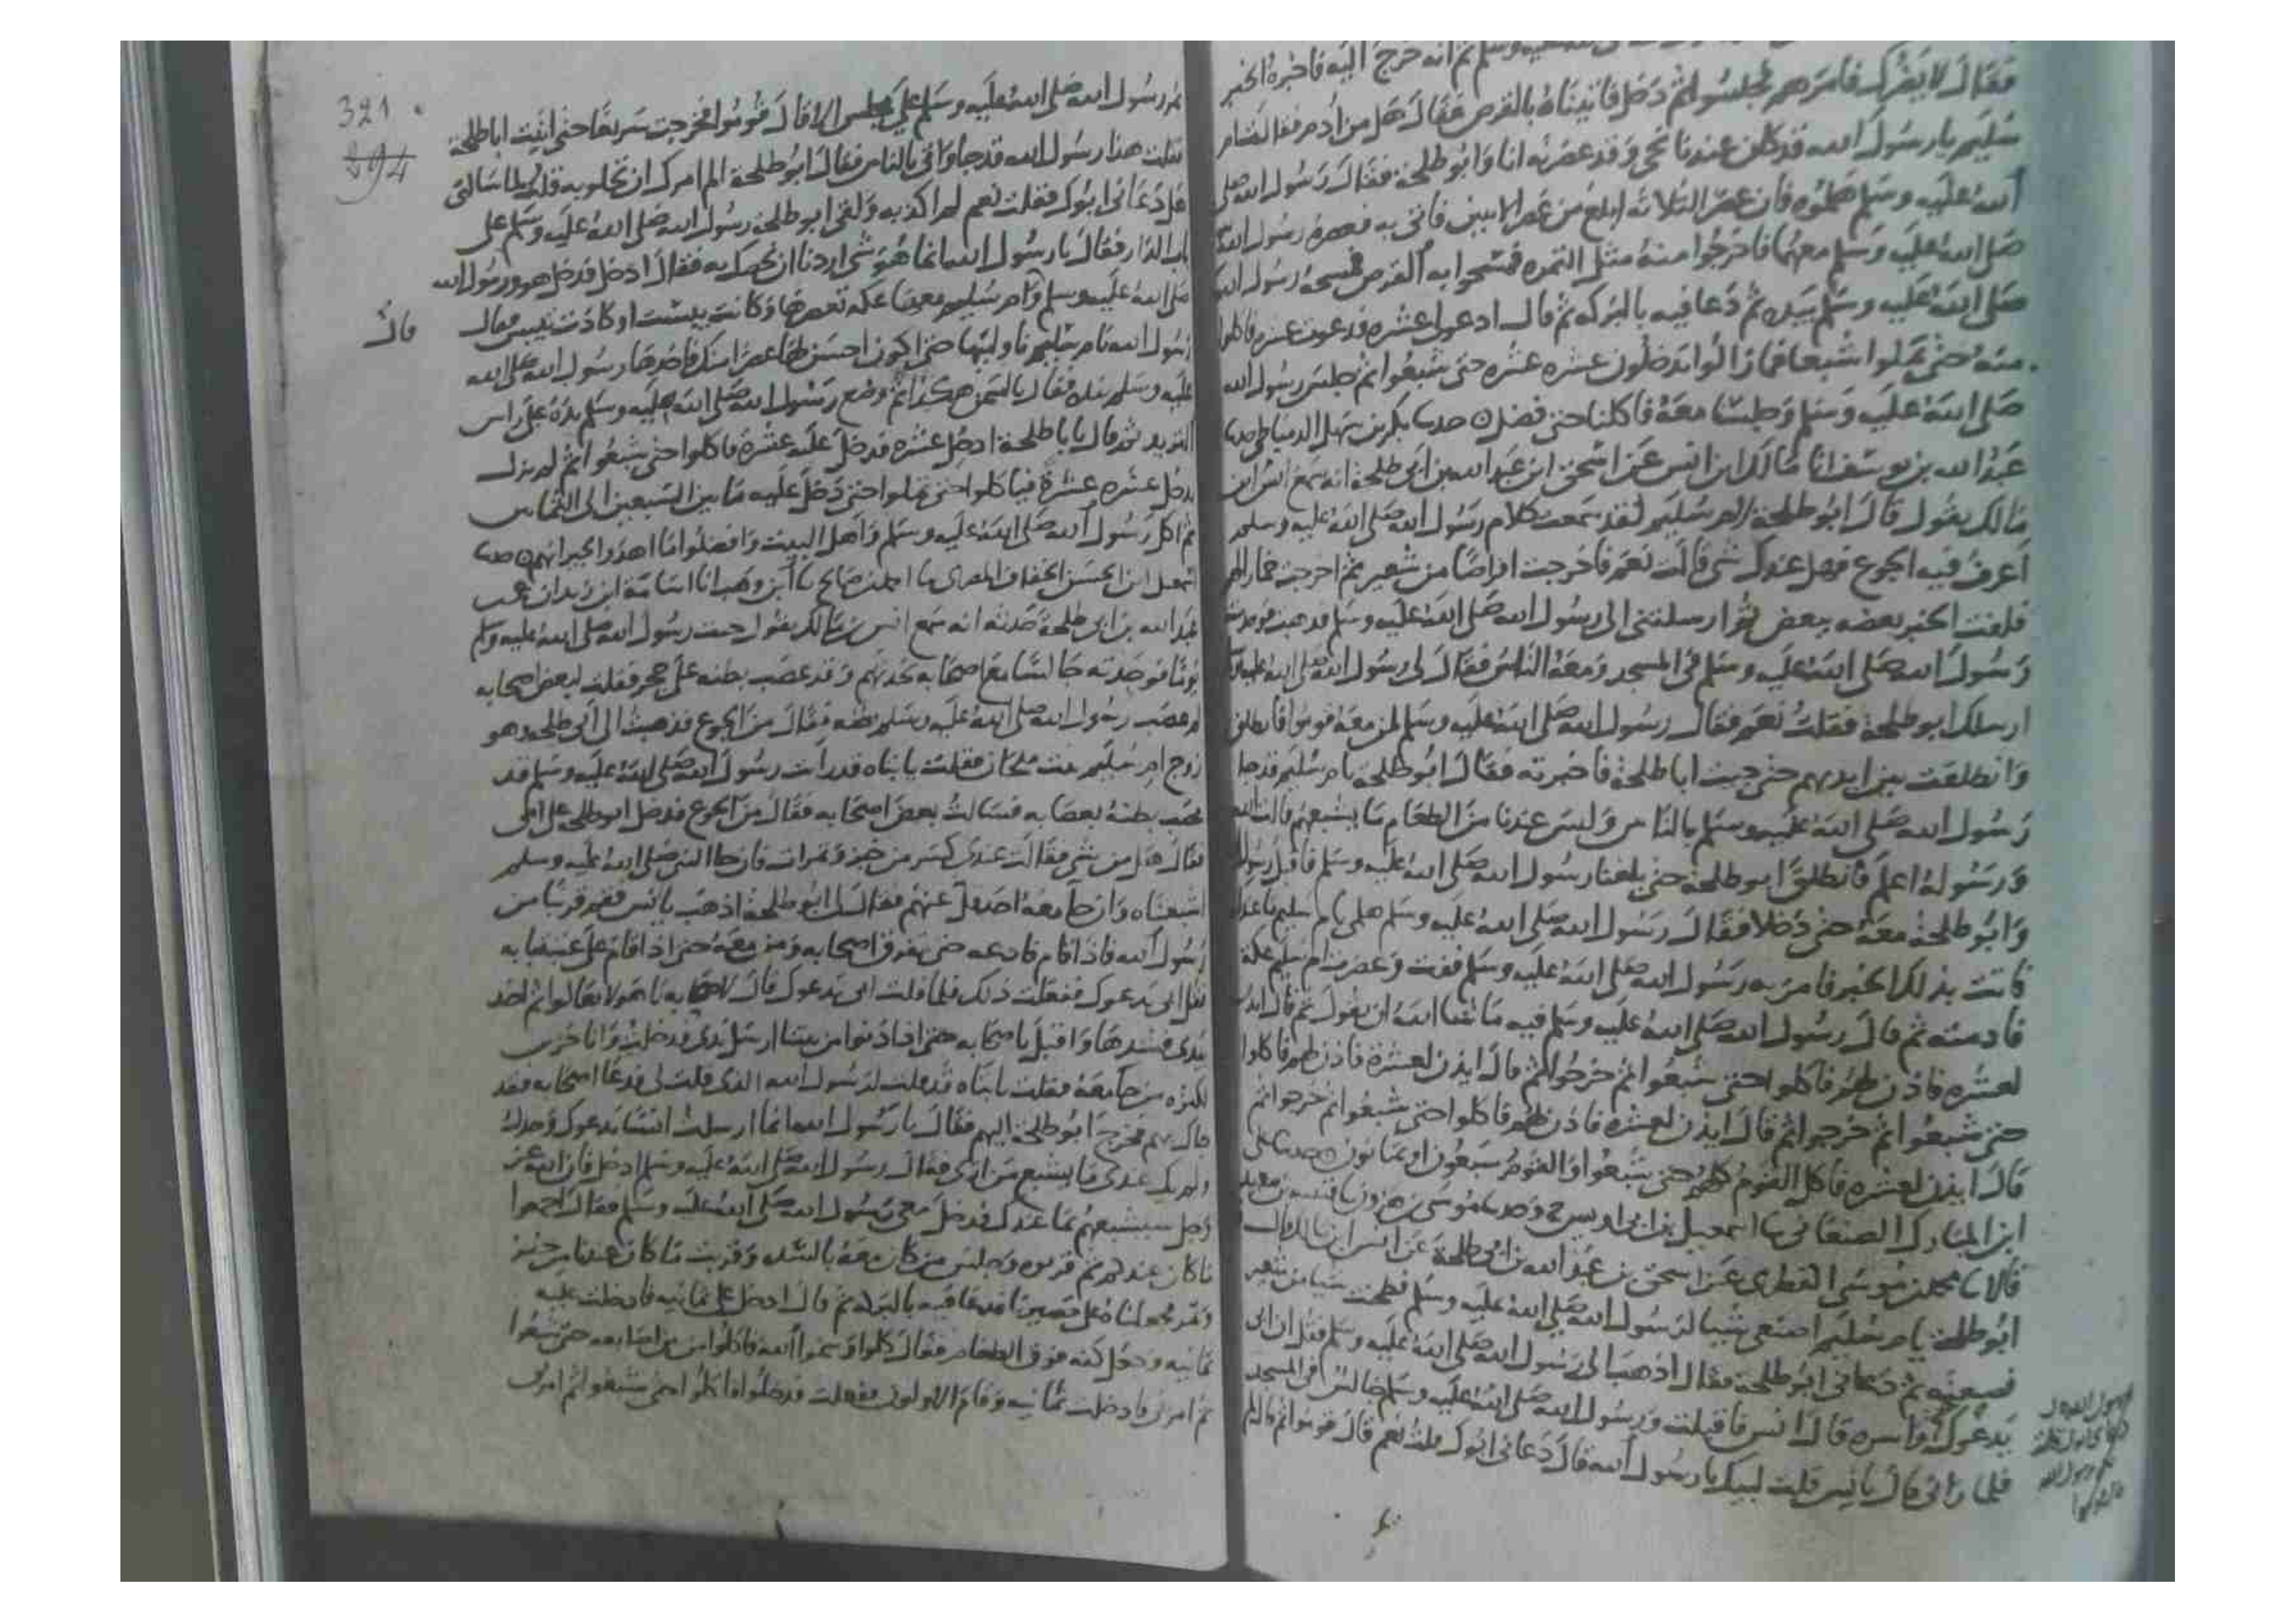 وسلم ثم انه خرج اليه فاخبره الخبر
فقال لا يضرك فامرهم فجلسوا ثم دخل فاتيناه بالقرص فقال هل من ادم فقالت ام
سليم يا رسول الله قد كان عندنا نحي وقد عصرته انا وابو طلحة فقال رسول الله صلى
الله عليه وسلم هلموه فان عصر الثلاثة ابلغ من عصر الاثنين فاتي به فعصره رسول الله
صلى الله عليه وسلم معهما فاخرجوا منه مثل التمرة فمسحوا به القرص فمسحه رسول الله
صلى الله عليه وسلم بيده ثم دعا فيه بالبركه ثم قال ادعوا عشره فدعوت عشره فاكلوا
منه حتى تملوا شبعا فما زالوا يدخلون عشره عشره حتى شبعوا ثم جلس رسول الله
صلى الله عليه وسلم وجلسنا معه فاكلنا حتى فضل حدثنا بكر بن سهل الدمياطي حدثنا
عبد الله بن يوسف انا مالك ابن انس عن اسحق ابن عبد الله بن ابي طلحة انه سمع انس ابن
مالك يقول قال ابو طلحة لام سليم لقد سمعت كلام رسول الله صلى الله عليه وسلم
اعرف فيه الجوع فهل عندك شي قالت نعم فاخرجت اقراصا من شعير ثم اخرجت خمارا لهم
فلفت الخبز بعضه ببعض ثم ارسلتني الى رسول الله صلى الله عليه وسلم فذهبت فوجدت
رسول الله صلى الله عليه وسلم في المسجد ومعه الناس فقال لي رسول الله صلى الله عليه وسلم
ارسلك ابو طلحة فقلت نعم فقال رسول الله صلى الله عليه وسلم لمن معه قوموا فانطلق
وانطلقت بين ايديهم حتى جيت ابا طلحة فاخبرته فقال ابو طلحة يام سليم قد جا
رسول الله صلى الله عليه وسلم بالناس وليس عندنا من الطعام ما يشبعهم قالت الله
ورسوله اعلم فانطلق ابو طلحة حتى بلغنا رسول الله صلى الله عليه وسلم فاقبل رسول الله
وابو طلحة معه حتى دخلا فقال رسول الله صلى الله عليه وسلم هلمي يام سليم ما عندك
فاتت بذلك الخبز فامر به رسول الله صلى الله عليه وسلم ففت وعصرت ام سليم عكة
فادمته ثم قال رسول الله صلى الله عليه وسلم فيه ما شا الله ان يقول ثم قال ايذن
لعشره فاذن لهم فاكلوا حتى شبعوا ثم خرجوا ثم قال ايذن لعشرة فاذن لهم فاكلوا
حتى شبعوا ثم خرجوا ثم قال ايذن لعشره فاذن لهم فاكلوا حتى شبعوا ثم خرجوا ثم
قال ايذن لعشره فاكل القوم كلهم حتى شبعوا والقوم سبعون او ثمانون حدثنا علي
ابن المبارك الصنعاني نا اسمعيل بن ابي اويس ح وحدثنا موسى بن هرون نا قتيبة بن سعيد
قالا نا محمد بن موسى الفطري عن اسحق بن عبد الله بن ابي طلحة عن انس ابن مالك قال
ابو طلحة يام سليم اصنعي شيا لرسول الله صلى الله عليه وسلم فطحنت شيا من شعير
فصنعته ثم دعاني ابو طلحة فقال اذهب الى رسول الله صلى الله عليه وسلم فقل ان ابي
يدعوك واسره قال انس فاقبلت ورسول الله صلى الله عليه وسلم جالس في المسجد
فلما راني قال يا انيس قلت لبيك يا رسول الله قال دعاني ابوك قلت نعم قال قوموا ثم قال لم
321
394
يمر رسول الله صلى الله عليه وسلم على مجلس الا قال قوموا فخرجت سريعا حتى اتيت ابا طلحة
فقلت هذا رسول الله قد جا وافى بالناس فقال ابو طلحة الم امرك ان تخلو به قلت لما سالني
هل دعاني ابوك فقلت نعم لم اكذبه ولقي ابو طلحة رسول الله صلى الله عليه وسلم على
باب الدار فقال يا رسول الله انما هو شي اردنا ان نخصك به فقال ادخل فدخل هو ورسول الله
صلى الله عليه وسلم وام سليم معها عكه تعصرها وكانت يبست او كادت تيبس فقال
قال
رسول الله يام سليم ناولنيها حتى اكون احسن لها عصرا منك فاخذها رسول الله صلى الله
عليه وسلم بيده فقال بالسمن هكذا ثم وضع رسول الله صلى الله عليه وسلم يده على راس
الثريد ثم قال يابا طلحة ادخل عشره فدخل عليه عشرة فاكلوا حتى شبعوا ثم لم يزل
يدخل عشره عشرة فياكلوا حتى تملوا حتى دخل عليه ما بين السبعين الى الثمانين
ثم اكل رسول الله صلى الله عليه وسلم واهل البيت وافضلوا ما اهدوا لجيرانهم حدثنا
اسمعيل ابن الحسن الخفاف المصري نا احمد بن صالح نا ابن وهب انا اسامة ابن زيد ان يعقوب
عبد الله بن ابي طلحة حدثه انه سمع انس بن مالك يقول جيت رسول الله صلى الله عليه وسلم
يوما فوجدته جالسا مع اصحابه يحدثهم وقد عصب بطنه على حجر فقلت لبعض اصحابه
لم عصب رسول الله صلى الله عليه وسلم بطنه فقال من الجوع فذهبت الى ابي طلحه وهو
زوج ام سليم بنت ملحان فقلت يابتاه قد رايت رسول الله صلى الله عليه وسلم قد
عصب بطنه بعصابه فسالت بعض اصحابه فقال من الجوع فدخل ابو طلحه على امي
فقال هل من شي فقالت عندي كسر من خبز وتمرات فان جا النبي صلى الله عليه وسلم
اشبعناه وان جا معه احد قل عنهم فقال لي ابو طلحة اذهب يا انس فقم قريبا من
رسول الله فاذا قام فدعه حتى تفرق اصحابه ومن معه حتى اذا قام على عتبة بابه
فقل ابي يدعوك ففعلت ذلك فلما قلت ابي يدعوك قال لاصحابه يا هولا تعالوا ثم اخذ
بيدي فشدها واقبل باصحابه حتى اذا دنوا من بيتنا ارسل يدي فدخلت وانا حزين
لكثره من جا معه فقلت يابتاه قد قلت لرسول الله الذي قلت لي فدعا اصحابه فقد
جاك بهم فخرج ابو طلحة اليهم فقال يا رسول الله انما ارسلت انسا يدعوك وحدك
ولم يك عندي ما يشبع من ارى فقال رسول الله صلى الله عليه وسلم ادخل فان الله عز
وجل سيشبعهم بما عندك فدخل معي رسول الله صلى الله عليه وسلم فقال اجمعوا
ما كان عندكم ثم قربوه وجلس من كان معه بالسده وقربت ما كان عندنا من خبز
وتمر فجعلناه على حصيرنا فدعا فيه بالبركه ثم قال ادخل علي ثمانيه فادخلت عليه
ثمانيه وجعل كفه فوق الطعام فقال كلوا وسموا الله فاكلوا من بين اصابعه حتى شبعوا
ثم امرني فادخلت ثمانيه وقام الاولون ففعلت فدخلوا فاكلوا حتى شبعوا ثم امرني